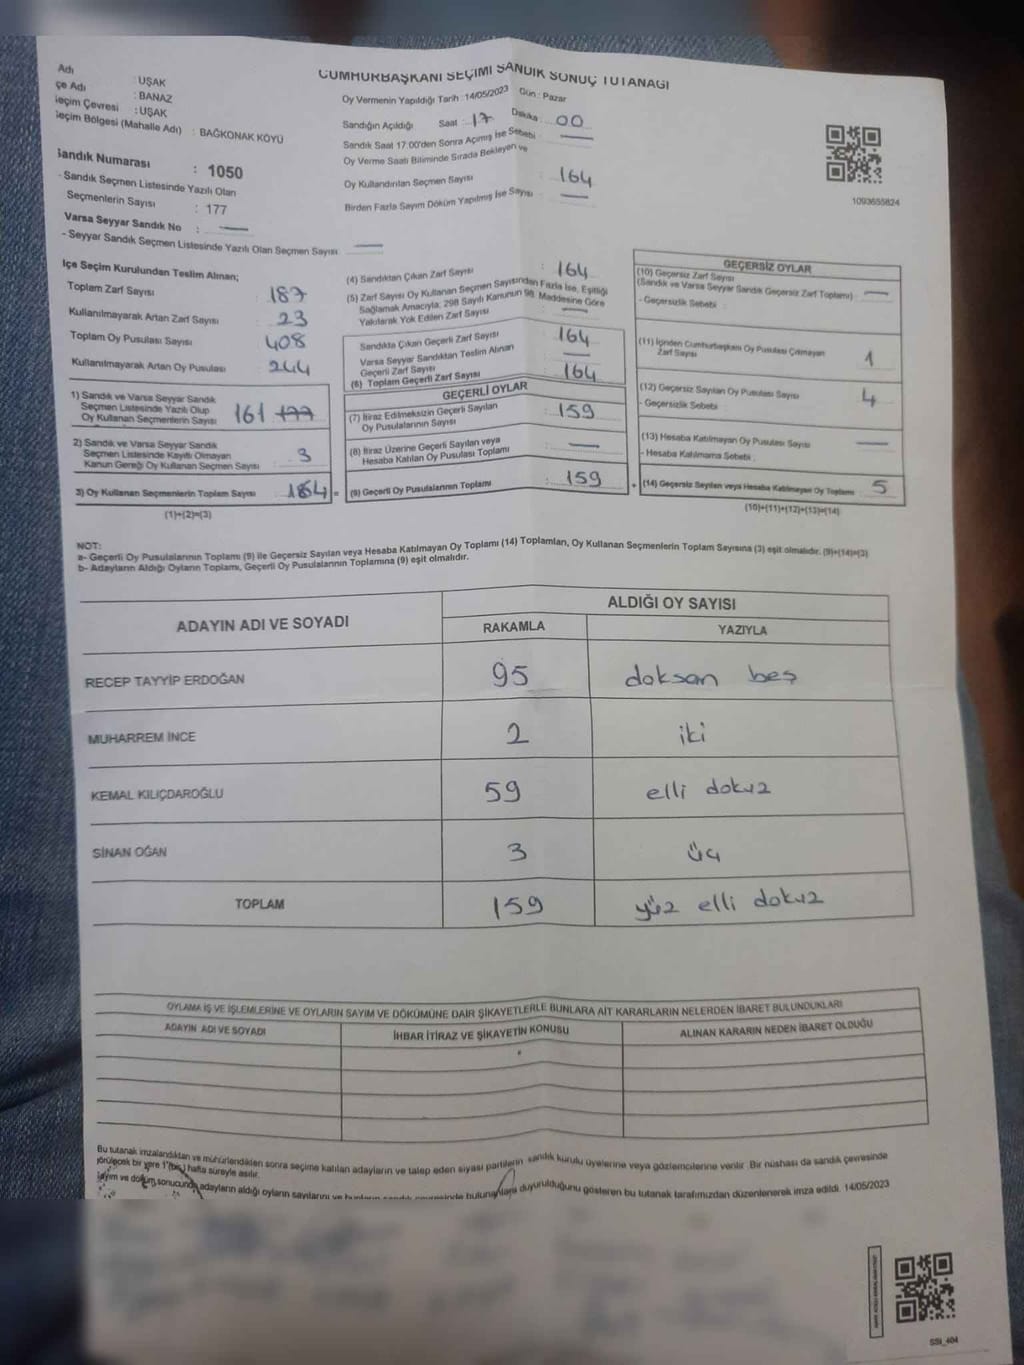 CUMHURBAŞKANI SEÇİMİ SANDIK SONUÇ TUTANAĞI
Adı : UŞAK
çe Adı : BANAZ
eçim Çevresi : UŞAK
eçim Bölgesi (Mahalle Adı) : BAĞKONAK KÖYÜ
Sandık Numarası : 1050
- Sandık Seçmen Listesinde Yazılı Olan
Seçmenlerin Sayısı : 177
Varsa Seyyar Sandık No : —
- Seyyar Sandık Seçmen Listesinde Yazılı Olan Seçmen Sayısı —
Oy Vermenin Yapıldığı Tarih : 14/05/2023 Gün : Pazar
Sandığın Açıldığı Saat : 17 Dakika : 00
Sandık Saat 17:00'den Sonra Açımış İse Sebebi : —
Oy Verme Saati Bitiminde Sırada Bekleyen ve
Oy Kullandırılan Seçmen Sayısı : 164
Birden Fazla Sayım Döküm Yapılmış İse Sayısı : —
1093655824
İlçe Seçim Kurulundan Teslim Alınan;
Toplam Zarf Sayısı : 187
Kullanılmayarak Artan Zarf Sayısı : 23
Toplam Oy Pusulası Sayısı : 408
Kullanılmayarak Artan Oy Pusulası : 244
1) Sandık ve Varsa Seyyar Sandık
Seçmen Listesinde Yazılı Olup
Oy Kullanan Seçmenlerin Sayısı : 161 177
2) Sandık ve Varsa Seyyar Sandık
Seçmen Listesinde Kayıtlı Olmayan
Kanun Gereği Oy Kullanan Seçmen Sayısı : 3
3) Oy Kullanan Seçmenlerin Toplam Sayısı : 164 =
(1)+(2)=(3)
(4) Sandıktan Çıkan Zarf Sayısı : 164
(5) Zarf Sayısı Oy Kullanan Seçmen Sayısından Fazla İse, Eşitliği
Sağlamak Amacıyla, 298 Sayılı Kanunun 98. Maddesine Göre
Yakılarak Yok Edilen Zarf Sayısı : —
Sandıkta Çıkan Geçerli Zarf Sayısı : 164
Varsa Seyyar Sandıktan Teslim Alınan
Geçerli Zarf Sayısı : —
(6) Toplam Geçerli Zarf Sayısı : 164
GEÇERLİ OYLAR
(7) İtiraz Edilmeksizin Geçerli Sayılan
Oy Pusulalarının Sayısı : 159
(8) İtiraz Üzerine Geçerli Sayılan veya
Hesaba Katılan Oy Pusulası Toplamı : —
(9) Geçerli Oy Pusulalarının Toplamı : 159 +
GEÇERSİZ OYLAR
(10) Geçersiz Zarf Sayısı
(Sandık ve Varsa Seyyar Sandık Geçersiz Zarf Toplamı) : —
- Geçersizlik Sebebi :
(11) İçinden Cumhurbaşkanı Oy Pusulası Çıkmayan
Zarf Sayısı : 1
(12) Geçersiz Sayılan Oy Pusulası Sayısı : 4
- Geçersizlik Sebebi
(13) Hesaba Katılmayan Oy Pusulası Sayısı : —
- Hesaba Katılmama Sebebi :
(14) Geçersiz Sayılan veya Hesaba Katılmayan Oy Toplamı : 5
(10)+(11)+(12)+(13)=(14)
NOT:
a- Geçerli Oy Pusulalarının Toplamı (9) ile Geçersiz Sayılan veya Hesaba Katılmayan Oy Toplamı (14) Toplamları, Oy Kullanan Seçmenlerin Toplam Sayısına (3) eşit olmalıdır. (9)+(14)=(3)
b- Adayların Aldığı Oyların Toplamı, Geçerli Oy Pusulalarının Toplamına (9) eşit olmalıdır.
ADAYIN ADI VE SOYADI ALDIĞI OY SAYISI
RAKAMLA YAZIYLA
RECEP TAYYİP ERDOĞAN 95 doksan beş
MUHARREM İNCE 2 iki
KEMAL KILIÇDAROĞLU 59 elli dokuz
SİNAN OĞAN 3 üç
TOPLAM 159 yüz elli dokuz
OYLAMA İŞ VE İŞLEMLERİNE VE OYLARIN SAYIM VE DÖKÜMÜNE DAİR ŞİKAYETLERLE BUNLARA AİT KARARLARIN NELERDEN İBARET BULUNDUKLARI
ADAYIN ADI VE SOYADI İHBAR İTİRAZ VE ŞİKAYETİN KONUSU ALINAN KARARIN NEDEN İBARET OLDUĞU
Bu tutanak imzalandıktan ve mühürlendikten sonra seçime katılan adayların ve talep eden siyasi partilerin sandık kurulu üyelerine veya gözlemcilerine verilir. Bir nüshası da sandık çevresinde
görülecek bir yere 1 (bir) hafta süreyle asılır.
Sayım ve döküm sonucunda adayların aldığı oyların sayılarını ve bunların sandık çevresinde bulunanlara duyurulduğunu gösteren bu tutanak tarafımızdan düzenlenerek imza edildi. 14/05/2023
SSI_404